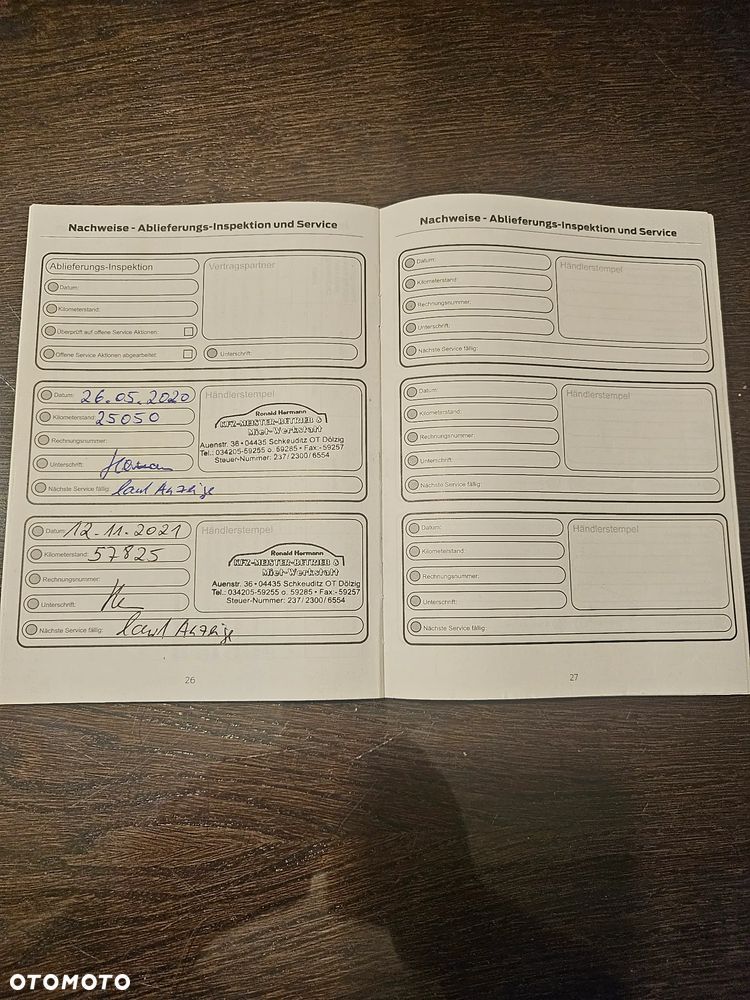 Nachweise - Ablieferungs-Inspektion und Service
Ablieferungs-Inspektion
Datum:
Kilometerstand:
Überprüft auf offene Service Aktionen:
Offene Service Aktionen abgearbeitet:
Vertragspartner
Unterschrift:
Datum: 26.05.2020
Kilometerstand: 25050
Rechnungsnummer:
Unterschrift:
Nächste Service fällig: laut Anzeige
Händlerstempel
Ronald Hermann
KFZ-MEISTER-BETRIEB &
Miet-Werkstatt
Auenstr. 36 • 04435 Schkeuditz OT Dölzig
Tel.: 034205-59255 o. 59285 • Fax:-59257
Steuer-Nummer: 237/2300/6554
Datum: 12.11.2021
Kilometerstand: 57825
Rechnungsnummer:
Unterschrift:
Nächste Service fällig: laut Anzeige
Händlerstempel
Ronald Hermann
KFZ-MEISTER-BETRIEB &
Miet-Werkstatt
Auenstr. 36 • 04435 Schkeuditz OT Dölzig
Tel.: 034205-59255 o. 59285 • Fax:-59257
Steuer-Nummer: 237/2300/6554
26
Nachweise - Ablieferungs-Inspektion und Service
Datum:
Kilometerstand:
Rechnungsnummer:
Unterschrift:
Nächste Service fällig:
Händlerstempel
Datum:
Kilometerstand:
Rechnungsnummer:
Unterschrift:
Nächste Service fällig:
Händlerstempel
Datum:
Kilometerstand:
Rechnungsnummer:
Unterschrift:
Nächste Service fällig:
Händlerstempel
27
OTOMOTO